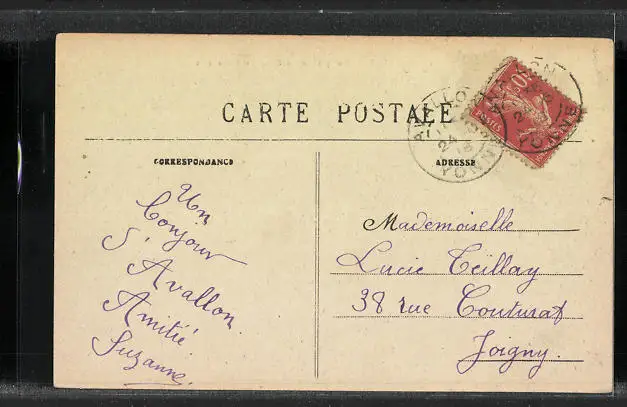 CARTE POSTALE
CORRESPONDANCE
ADRESSE
AVALLON
YONNE
Un
bonjour
d'Avallon
Amitié
Suzanne.
Mademoiselle
Lucie
38 rue Couturat
Joigny.